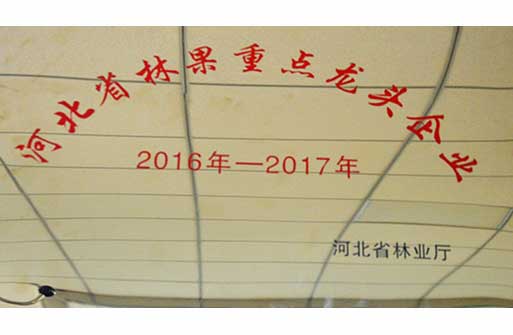 河北省林果重点龙头企业
2016年—2017年
河北省林业厅